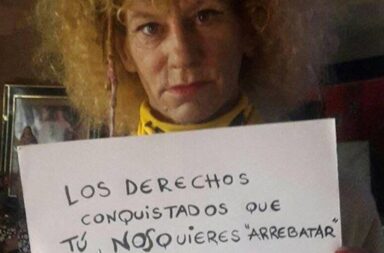 LOS DERECHOS
CONQUISTADOS QUE
TÚ, NOS QUIERES "ARREBATAR"